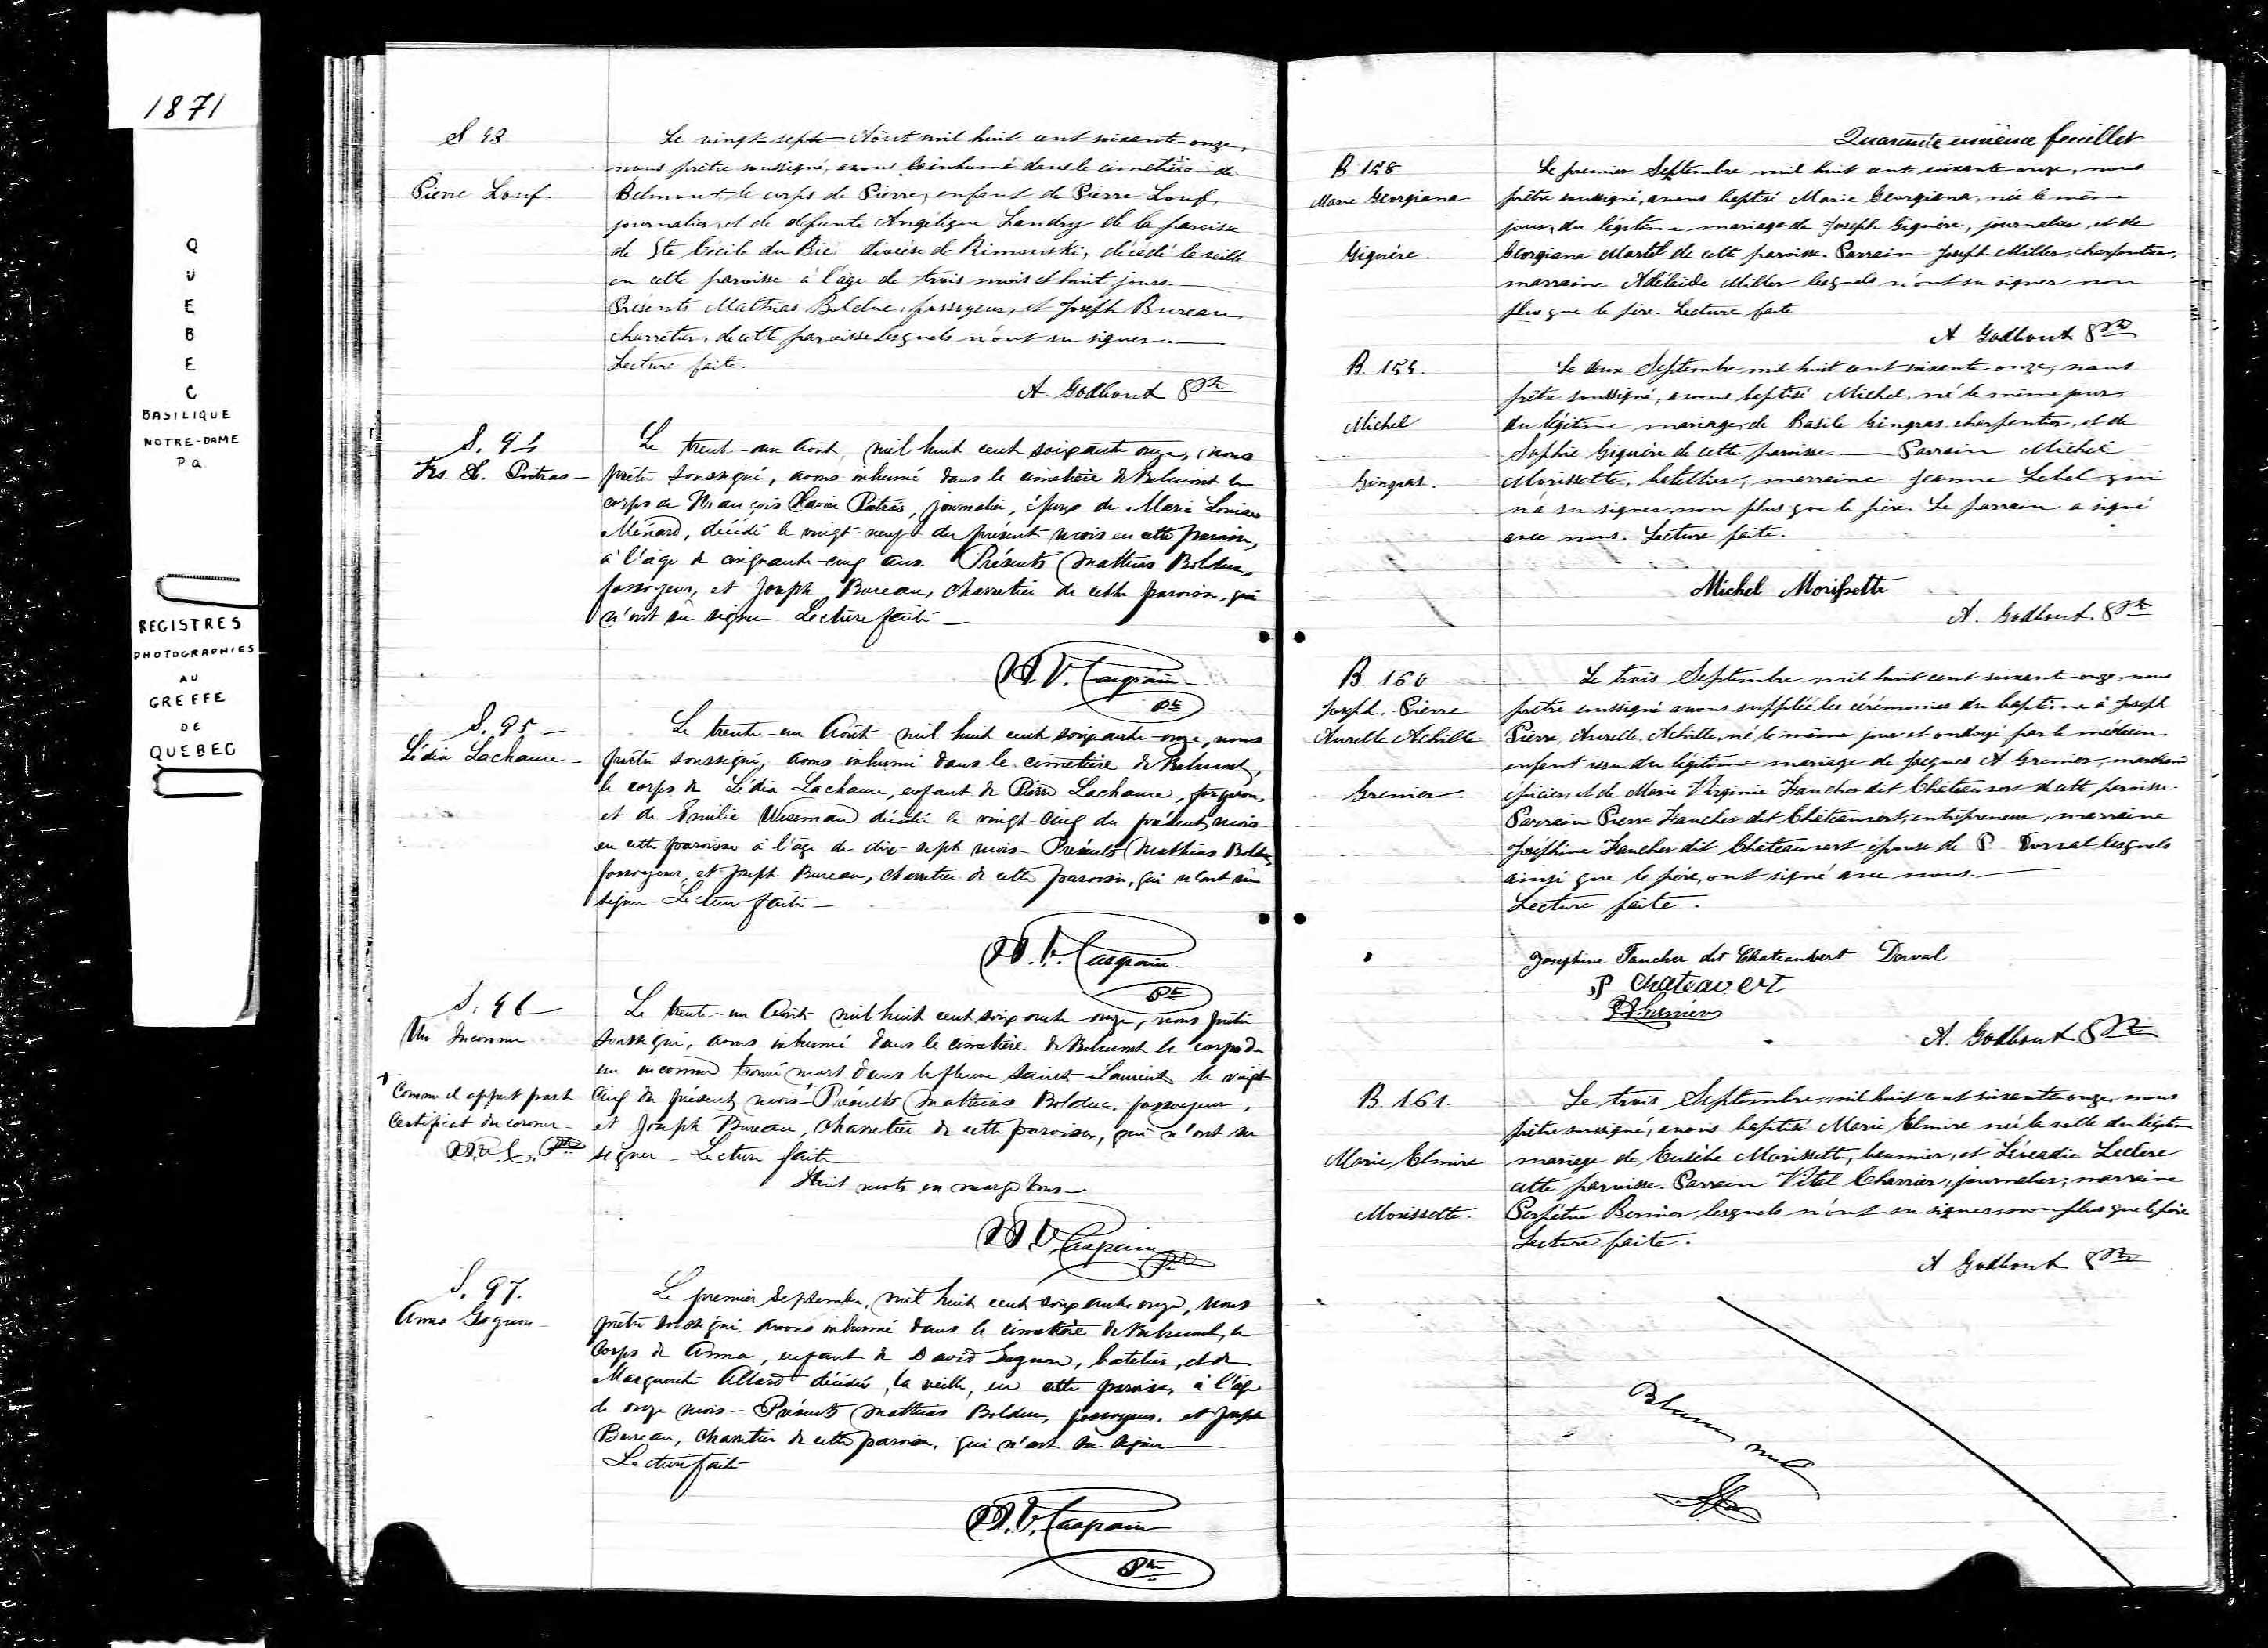 1871
QUEBEC
BASILIQUE
NOTRE-DAME
P.Q.
REGISTRES
PHOTOGRAPHIES
AU
GREFFE
DE
QUEBEC
S 93
Pierre Louf.
Le vingt-sept Août mil huit cent soixante onze,
nous prêtre soussigné, avons inhumé dans le cimetière de
Belmont le corps de Pierre, enfant de Pierre Louf,
journalier, et de défunte Angélique Landry de la paroisse
de Ste Cécile du Bic diocèse de Rimouski, décédé la veille
en cette paroisse à l'âge de trois mois et huit jours.
Présents Mathias Bolduc, fossoyeur, et Joseph Bureau
charretier, de cette paroisse lesquels n'ont su signer.
Lecture faite.
A Godbout Ptre
S. 94
Frs. X. Poitras
Le trent-un Août, mil huit cent soixante onze, nous
prêtre soussigné, avons inhumé dans le cimetière de Belmont le
corps de François Xavier Poitras, journalier, époux de Marie Louise
Ménard, décédé le vingt-neuf du présent mois en cette paroisse,
à l'âge de cinquante-cinq ans. Présents Mathias Bolduc,
fossoyeur, et Joseph Bureau, charretier de cette paroisse, qui
n'ont su signer Lecture faite
Casgrain
Ptre
S. 95
Lédia Lachance
Le trente-un Août mil huit cent soixante-onze, nous
prêtre soussigné, avons inhumé dans le cimetière de Belmont,
le corps de Lédia Lachance, enfant de Pierre Lachance, forgeron,
et de Emilie Wiseman décédée le vingt-cinq du présent mois
en cette paroisse à l'âge de dix-sept mois - Présents Mathias Bolduc,
fossoyeur, et Joseph Bureau, charretier de cette paroisse, qui n'ont su
signer - Lecture faite
Casgrain
Ptre
S. 96
Un Inconnu
Le trente-un Août mil huit cent soixante onze, nous prêtre
soussigné, avons inhumé dans le cimetière de Belmont le corps de
un inconnu trouvé mort dans le fleuve Saint-Laurent le vingt
cinq du présent mois + Présents Mathias Bolduc, fossoyeur,
et Joseph Bureau, charretier de cette paroisse, qui n'ont su
signer - Lecture faite
+ Comme il appert par le
certificat du coroner
Huit mots en marge bons
Casgrain
Ptre
S. 97.
Anna Gagnon
Le premier Septembre, mil huit cent soixante onze, nous
prêtre soussigné, avons inhumé dans le cimetière de Belmont, le
corps de Anna, enfant de David Gagnon, batelier, et de
Marguerite Allard décédée, la veille, en cette paroisse, à l'âge
de onze mois - Présents Mathias Bolduc, fossoyeur, et Joseph
Bureau, charretier de cette paroisse, qui n'ont su signer
Lecture faite
Casgrain
Ptre
Quarante unième feuillet
B 158
Marie Georgiana
Giguère.
Le premier Septembre mil huit cent soixante onze, nous
prêtre soussigné, avons baptisé Marie Georgiana, née le même
jour, du légitime mariage de Joseph Giguère, journalier, et de
Georgiana Martel de cette paroisse. Parrain Joseph Miller, charpentier,
marraine Adélaide Miller lesquels n'ont su signer non
plus que le père. Lecture faite
A Godbout Ptre
B. 159.
Michel
Gingras.
Le deux Septembre mil huit cent soixante onze, nous
prêtre soussigné, avons baptisé Michel, né le même jour
du légitime mariage de Basile Gingras, charpentier, et de
Sophie Giguère de cette paroisse. Parrain Michel
Morissette, batellier, marraine Jeanne Lebel qui
n'a su signer non plus que le père. Le parrain a signé
avec nous. Lecture faite.
Michel Morissette
A. Godbout. Ptre
B. 160
Joseph. Pierre
Aurelle Achille
Grenier.
Le trois Septembre mil huit cent soixante onze, nous
prêtre soussigné avons suppléé les cérémonies du baptême à Joseph
Pierre, Aurelle, Achille, né le même jour et ondoyé par le médecin.
enfant issu du légitime mariage de Jacques A. Grenier, marchand
épicier, et de Marie Virginie Faucher dit Châteauvert de cette paroisse.
Parrain Pierre Faucher dit Châteauvert, entrepreneur, marraine
Joséphine Faucher dit Châteauvert épouse de P. Dorval lesquels
ainsi que le père, ont signé avec nous.
Lecture faite.
Josephine Faucher dit Chateauvert Dorval
P Chateauvert
Grenier
A. Godbout Ptre
B. 161.
Marie Elmire
Morissette.
Le trois Septembre mil huit cent soixante onze, nous
prêtre soussigné, avons baptisé Marie Elmire née la veille du légitime
mariage de Eusèbe Morissette, et Léocadie Leclerc
cette paroisse. Parrain Vital Charrier, journalier, marraine
Perpétue Bernier lesquels n'ont su signer non plus que le père
Lecture faite.
A Godbout Ptre
Blanc nul